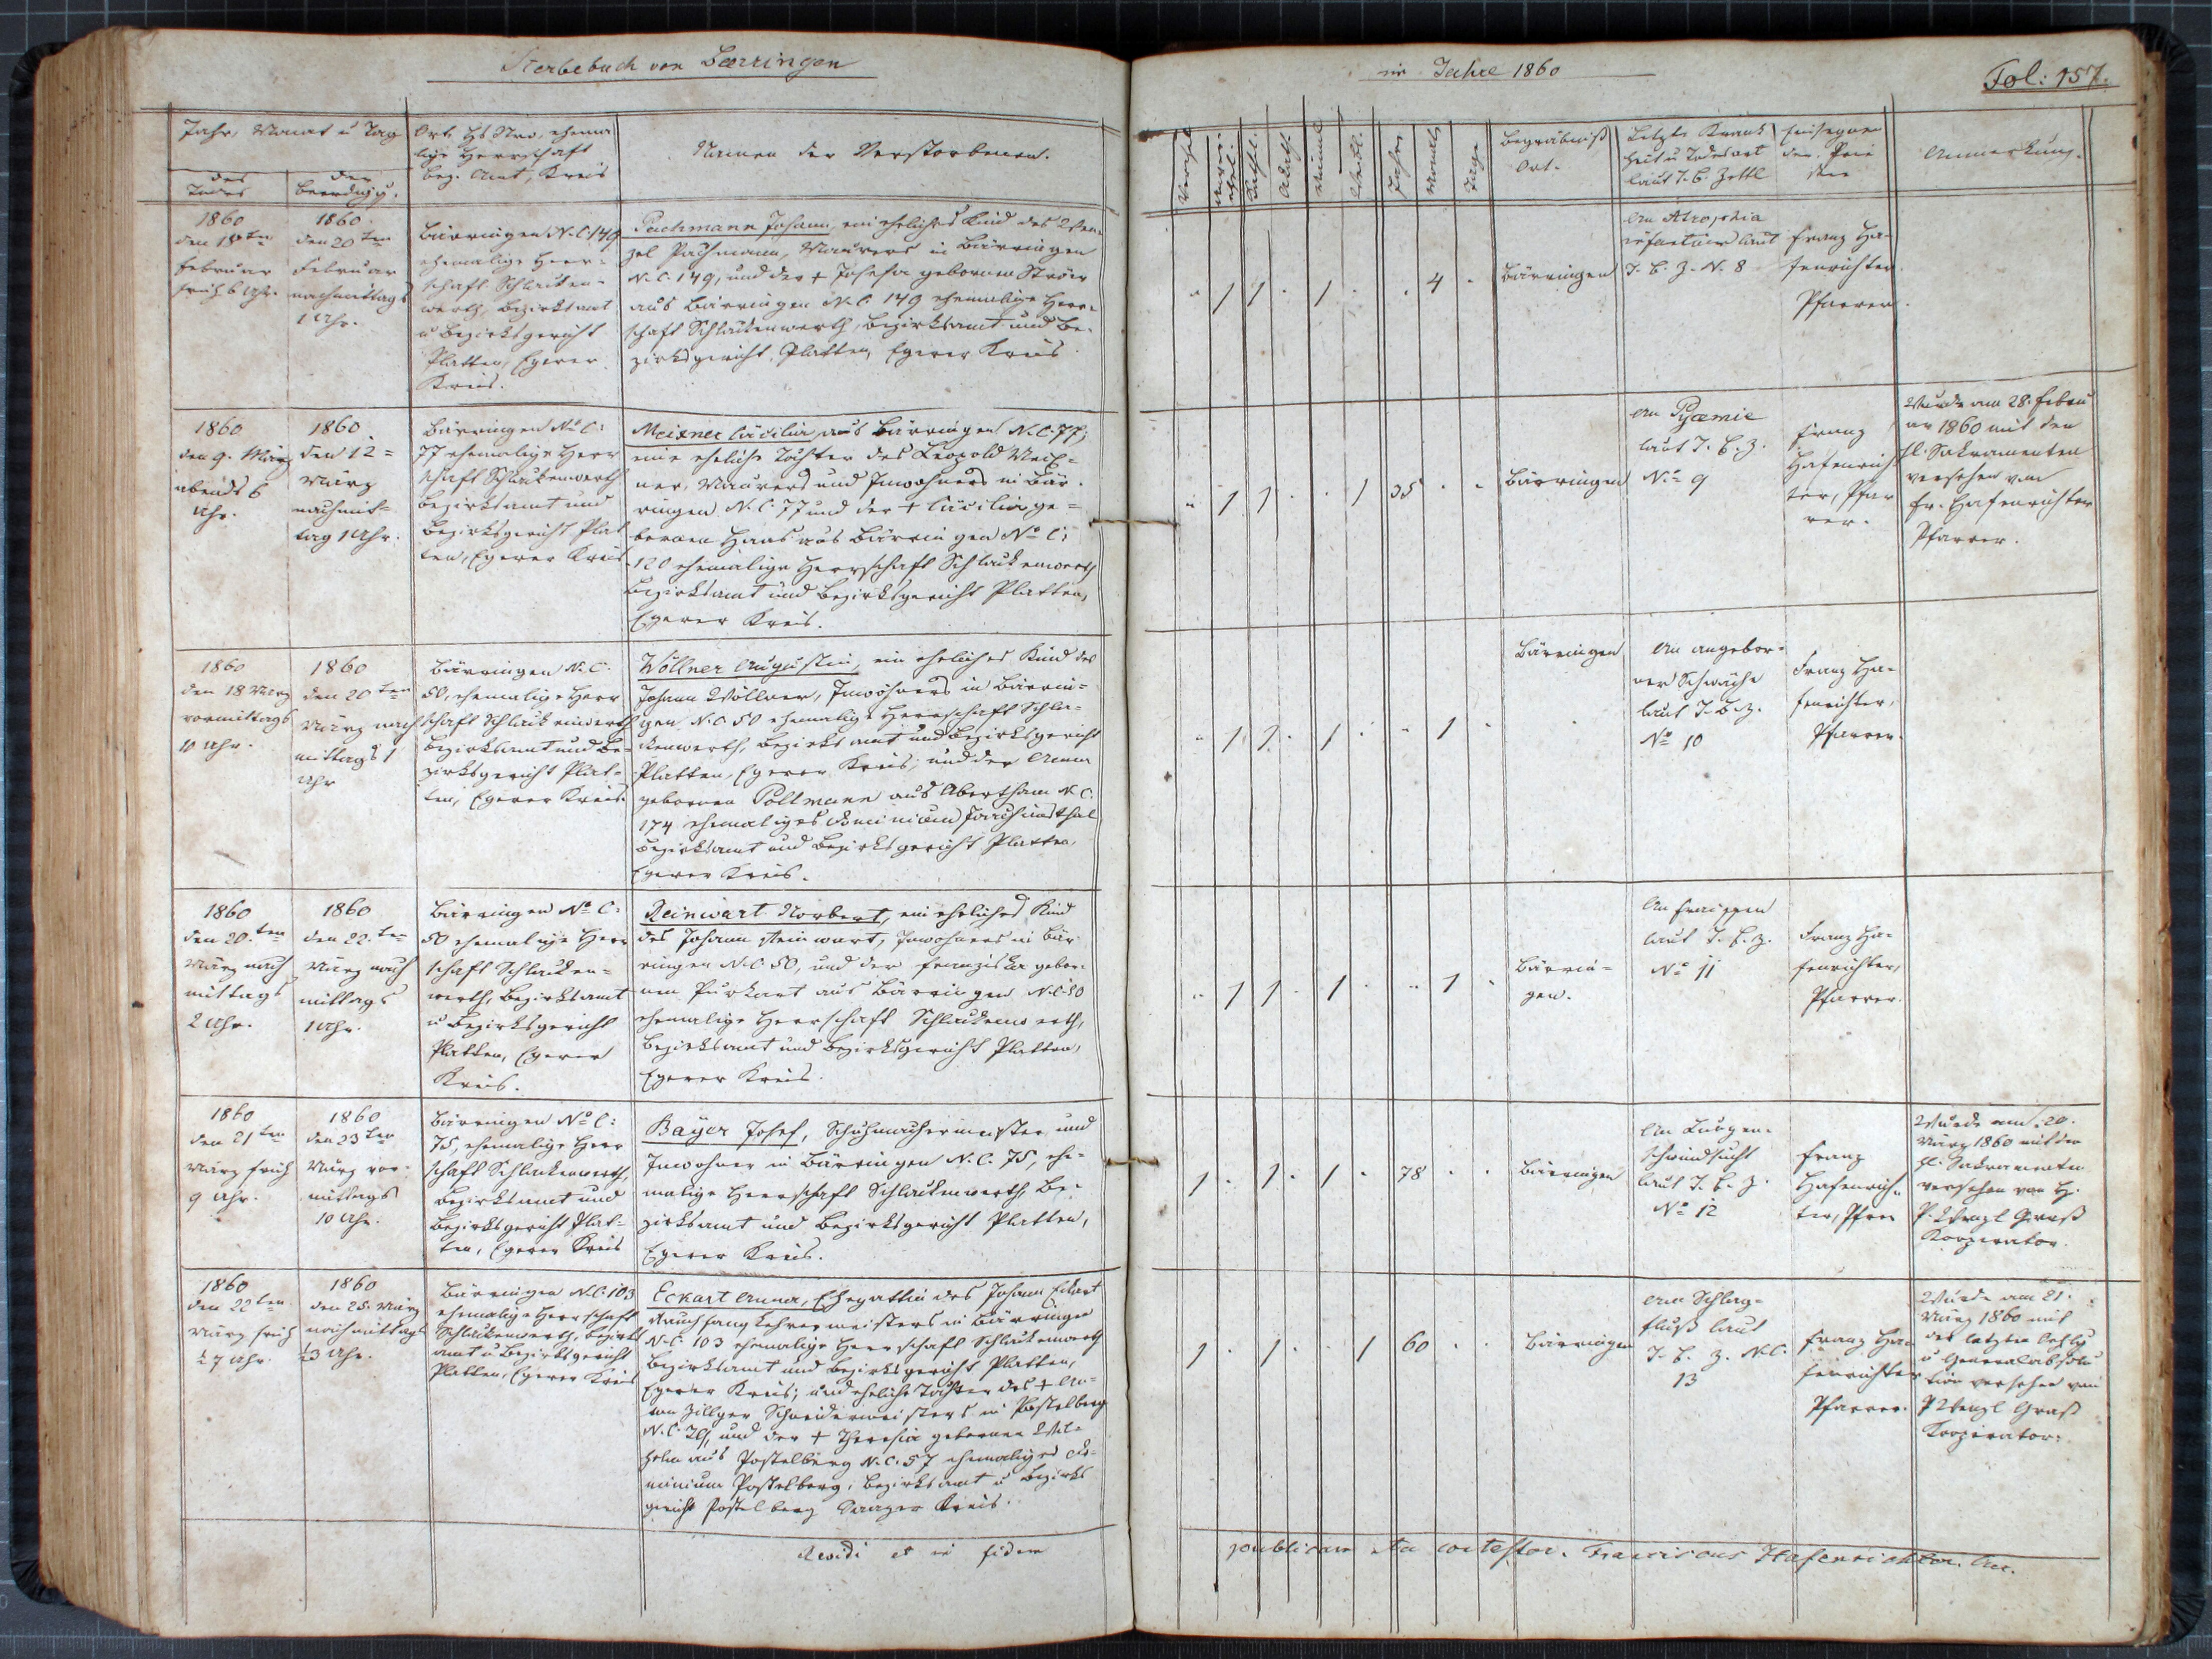 Sterbebuch von Baerringen
im Jahre 1860
Fol: 157.
Jahr, Monat u Tag
des Todes
der Beerdigg.
Ort, Hs Nro, ehema
lige Herrschaft
Bez. Amt, Kreis
Namen der Verstorbenen.
Jahre
Monate
Tage
Begräbniß
Ort.
Letzte Krank
heit u Todesart
laut T. B. Zettl
Einsegnen
der Prie
ster
Anmerkung.
1860
den 18ten
Februar
früh 6 Uhr.
1860
den 20ten
Februar
nachmittags
1 Uhr.
Bärringen N.C. 149
ehemalige Herr-
schaft Schlacken-
werth, Bezirksamt
u Bezirksgericht
Platten, Egerer
Kreis.
Pachmann Johann, ein eheliches Kind des Wen-
zel Pachmann, Maurers in Bärringen
N.C. 149, und der + Josefa gebornen
aus Bärringen N.C. 149 ehemalige Herr-
schaft Schlackenwerth, Bezirksamt und Be-
zirksgericht Platten, Egerer Kreis
1 1 1 4
Bärringen
An Atrophia
infantum laut
T. B. Z. N. 8
Franz Ha-
fenrichter
Pfarrer.
1860
den 9. März
abends 6
Uhr.
1860
den 12=
März
nachmit=
tag 1 Uhr.
Bärringen No C:
77 ehemalige Herr
schaft Schlackenwerth
Bezirksamt und
Bezirksgericht Plat
ten, Egerer Kreis
Meixner Cäcilia aus Bärringen N.C. 77;
eine eheliche Tochter des Leopold Meix=
ner, Maurers und Inwohners in Bär
ringen N.C. 77 und der + Cäcilia ge=
bornen Haas aus Bärringen No C:
120 ehemalige Herrschaft Schlackenwerth
Bezirksamt und Bezirksgericht Platten,
Egerer Kreis.
1 1 1 35
Bärringen
An Pyaemie
laut T. B. Z.
No 9
Franz
Hafenrich
ter, Pfar
rer.
Wurde am 28. Febru
ar 1860 mit den
hl. Sakramenten
versehen von
Fr. Hafenrichter
Pfarrer.
1860
den 18 März
vormittags
10 Uhr.
1860
den 20ten
März nach
mittags 1
Uhr
Bärringen N.C.
50, ehemalige Herr
schaft Schlackenwerth
Bezirksamt und Be-
zirksgericht Plat=
ten, Egerer Kreis.
Wöllner Augustin, ein eheliches Kind des
Johann Wöllner, Inwohners in Bärrin=
gen N.C. 50 ehemalige Herrschaft Schla=
ckenwerth, Bezirksamt und Bezirksgericht
Platten, Egerer Kreis, und der Anna
gebornen Pollmann aus Abertham N.C.
174 ehemaliges Dominium Joachimsthal
Bezirksamt und Bezirksgericht Platten,
Egerer Kreis.
1 1 1 1
Bärringen
An angebor-
ner Schwäche
laut T. B. Z.
No 10
Franz Ha-
fenrichter,
Pfarrer.
1860
den 20.ten
März nach
mittags
2 Uhr.
1860
den 22.ten
März nach
mittags
1 Uhr.
Bärringen No C:
50 ehemalige Herr
schaft Schlacken=
werth, Bezirksamt
u Bezirksgericht
Platten, Egerer
Kreis.
Reinwart Norbert, ein eheliches Kind
des Johann Reinwart, Inwohners in Bär
ringen N.C. 50, und der Franziska gebor-
nen Purkart aus Bärringen N.C. 50
ehemalige Herrschaft Schlackenwerth,
Bezirksamt und Bezirksgericht Platten,
Egerer Kreis.
1 1 1 1
Bärrin=
gen.
An Fraissen
laut T. B. Z.
No 11
Franz Ha-
fenrichter,
Pfarrer.
1860
den 21ten
März früh
9 Uhr.
1860
den 23ten
März vor-
mittags
10 Uhr.
Bärringen No C:
75, ehemalige Herr
schaft Schlackenwerth,
Bezirksamt und
Bezirksgericht Plat=
ten, Egerer Kreis
Bayer Josef, Schuhmachermeister und
Inwohner in Bärringen N.C. 75, ehe-
malige Herrschaft Schlackenwerth, Be-
zirksamt und Bezirksgericht Platten,
Egerer Kreis.
1 1 1 78
Bärringen
An Lungen-
schwindsucht
laut T. B. Z.
No 12
Franz
Hafenrich-
ter, Pfarr
Wurde am 20.
März 1860 mit den
hl. Sakramenten
versehen von H.
P. Wenzl Graß
Kooperator.
1860
den 22ten
März früh
½ 7 Uhr.
1860
den 25. März
nachmittags
½3 Uhr.
Bärringen N.C. 103
ehemalige Herrschaft
Schlackenwerth, Bezirks
amt u Bezirksgericht
Platten, Egerer Kreis
Eckart Anna, Ehegattin des Johann Eckart
Rauchfangkehrermeisters in Bärringen
N.C. 103 ehemalige Herrschaft Schlackenwerth
Bezirksamt und Bezirksgericht Platten,
Egerer Kreis; und eheliche Tochter des + An-
ton Zillger Schneidermeisters in Postelberg
N.C. und der + Theresia gebornen Wil-
helm aus Postelberg N.C. 57 ehemaliges Do-
minium Postelberg, Bezirksamt u Bezirks
gericht Postelberg Saazer Kreis.
1 1 1 60
Bärringen
Am Schlag-
fluß laut
T. B. Z. N.C.
13
Franz Ha-
fenrichter
Pfarrer.
Wurde am 21.
März 1860 mit
der letzten Oehlg
u Generalabsolu
tion versehen von
P Wenzl Graß
Kooperator.
Revidi et in fidem
publicam ita contestor. Franciscus Hafenrichter.